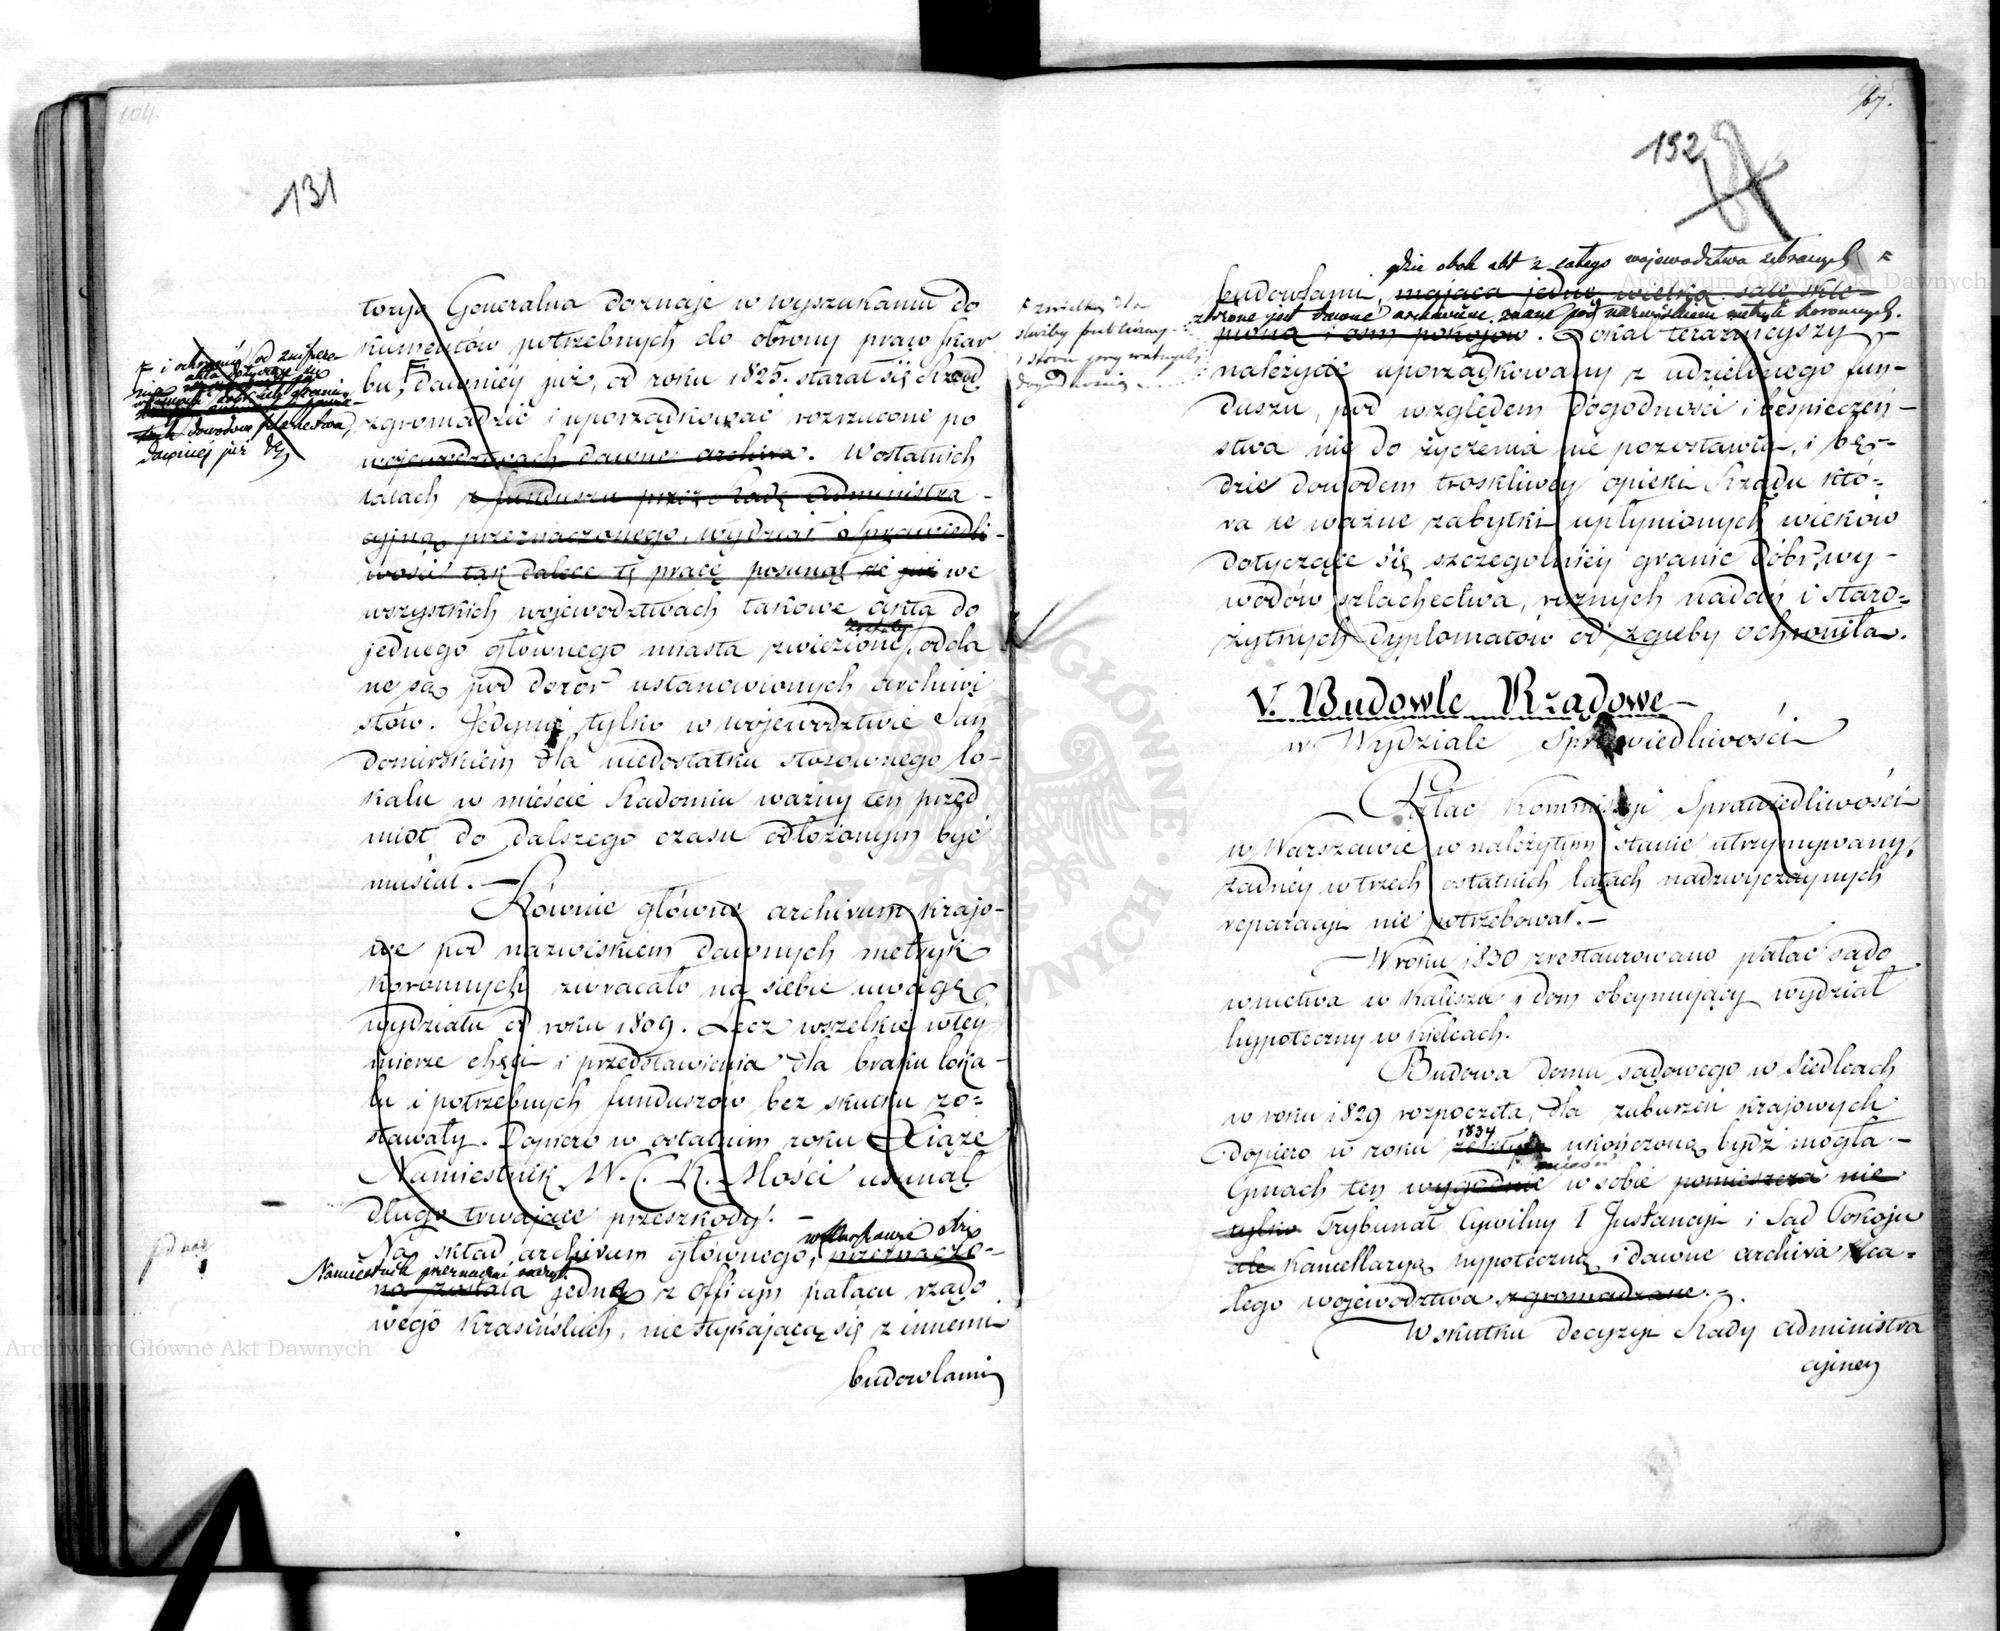 104.
131
torya Generalna doznaje w wyszukaniu do
kumentów potrzebnych do obrony praw skar
bu, dawniéy już, od roku 1825. starał się Rząd
zgromadzić i uporządkować rozrzucone po
województwach dawne archiwa. W ostatnich
latach z funduszu przez Radę Administra-
cyjną przeznaczonego, wydział Sprawiedli-
wości tak dalece tę pracę posunął że już we
wszystkich województwach takowe akta do
zostały
jednego głównego miasta zwiezione, odda
ne są pod dozór ustanowionych archiwi
stów. Jedynie tylko w województwie San
domirskiem dla niedostatku stosownego lo-
kalu w mieście Radomiu ważny ten przed
miot do dalszego czasu odłożonym być
musiał.-
Równie główne archivum krajo-
we pod nazwiskiem dawnych metryk
koronnych zwracało na siebie uwagę
wydziału od roku 1809. Lecz wszelkie w téy
mierze chęci i przedstawienia dla braku loka-
lu i potrzebnych funduszów bez skutku zo=
stawały. Dopiero w ostatnim roku Xiąże
Namiestnik W. C. K. Mości usunął
długo trwające przeszkody. -
w Warszawie
Na skład archivum głównego, przeznaczo-
Namiestnik przeznaczyć raczył
na została jedną z officyn pałacu rządo
wego Krasińskich, nie stykającą się z innemi
budowlami
i ochronić od
dawniej już
zwielką dla
służby publiczney
i stron prywatnych
dogodnością
67.
132
gdzie obok akt z całego województwa zebranych
budowlami, mająca jedne wielką salę skle-
złożone jest dawne archiwum znane pod nazwiskiem metryk koronnych.
pioną i osm pokojów. Lokal teraznieyszy
należycie uporządkowany z udzielonego fun-
duszu, pod względem dogodności i bespieczeń-
stwa nic do życzenia nie pozostawia, i bę-
dzie dowodem troskliwéy opieki Rządu któ=
ra te ważne zabytki upłynionych wieków
dotyczące się szczególniéy granic dóbr, wy-
wodów szlachectwa, róznych nadań i staro=
żytnych dyplomatów od zguby ochroniła.
V. Budowle Rządowe-
w Wydziale Sprawiedliwości
Pałac Kommissyi Sprawiedliwości
w Warszawie w należytym stanie utrzymywany,
żadnéy w trzech ostatnich latach nadzwyczaynych
reparacyi nie potrzebował.-
W roku 1830 zrestaurowano pałac sądo
wnictwa w Kaliszu i dom obeymujący wydział
hyppoteczny w Kielcach.
Budowa domu sądowego w Siedlcach
w roku 1829 rozpoczęta, dla zaburzeń krajowych
1834
Dopiero w roku zeszłym ukończoną bydź mogła.-
mieści
Gmach ten wygodnie w sobie pomieszcza nie
tylko Trybunał Cywilny I Instancyi i Sąd Pokoju
ale Kancellaryą hyppoteczną i dawne archiva z ca=
łego województwa zgromadzone.-
W skutku decyzyi Rady Administra
cyjney
Archiwum Główne Akt Dawnych
Archiwum Główne Akt Dawnych
ARCHIWUM GŁÓWNE AKT DAWNYCH